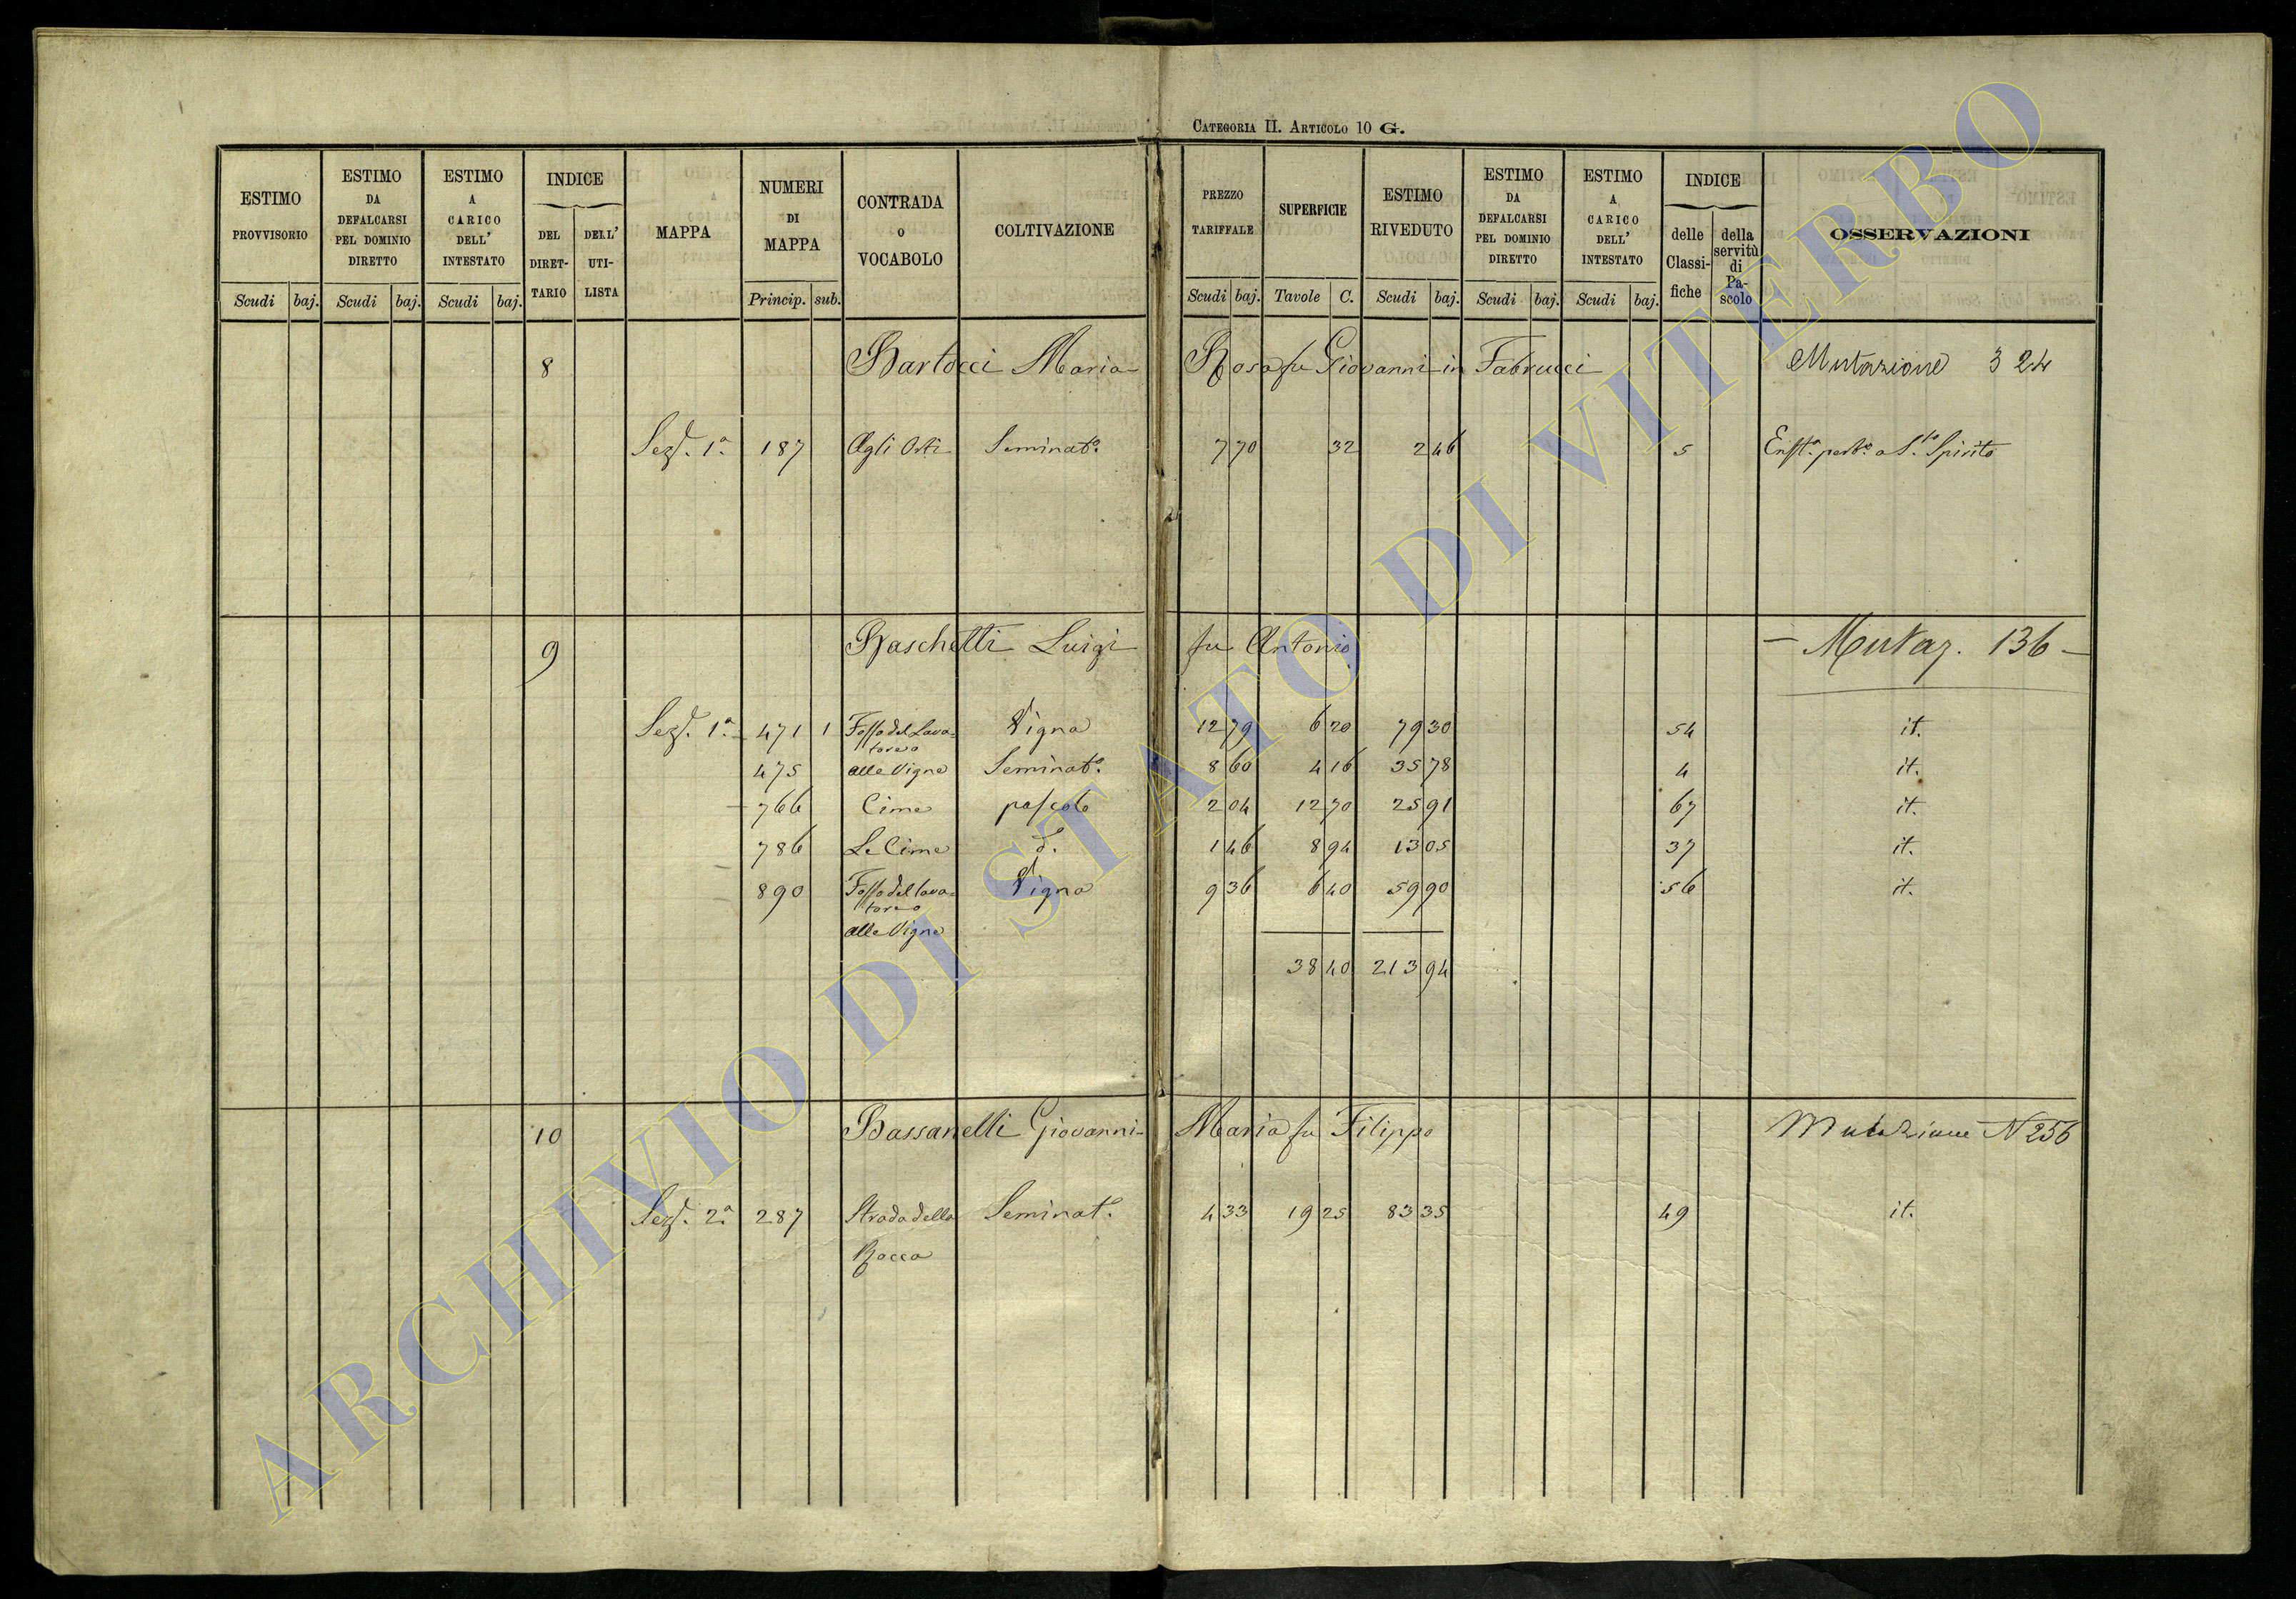 CATEGORIA II. ARTICOLO 10 G.
ESTIMO PROVVISORIO
Scudi baj.
ESTIMO DA DEFALCARSI PEL DOMINIO DIRETTO
Scudi baj.
ESTIMO A CARICO DELL' INTESTATO
Scudi baj.
INDICE
DEL DIRET-TARIO
DELL' UTI-LISTA
MAPPA
NUMERI DI MAPPA
Princip. sub.
CONTRADA O VOCABOLO
COLTIVAZIONE
PREZZO TARIFFALE
Scudi baj.
SUPERFICIE
Tavole C.
ESTIMO RIVEDUTO
Scudi baj.
ESTIMO DA DEFALCARSI PEL DOMINIO DIRETTO
Scudi baj.
ESTIMO A CARICO DELL' INTESTATO
Scudi baj.
INDICE
delle Classi-fiche
della servitù di Pa-scolo
OSSERVAZIONI
8 Bartocci Maria Rosa fu Giovanni in Fabrucci Mutazione 324
Sez. 1a 187 Agli Orti Seminato 7 70 32 2 46 5 Enfta. perta. a S.to Spirito
9 Baschetti Luigi fu Antonio — Mutaz. 136 —
Sez. 1a 471 1 Fosso del Lava= Vigna 12 79 6 20 79 30 54 it.
toreo
475 alle Vigne Seminato 8 60 4 16 35 78 4 it.
766 Cime pascolo 2 04 12 70 25 91 67 it.
786 Le Cime d. 1 46 8 94 13 05 37 it.
890 Fosso del lava= Vigna 9 36 6 40 59 90 56 it.
toreo
alle Vigne
38 40 213 94
10 Bassanelli Giovanni Maria fu Filippo Mutazione N 256
Sez. 2a 287 Strada della Seminat. 4 33 19 25 83 35 49 it.
Rocca
ARCHIVIO DI STATO DI VITERBO